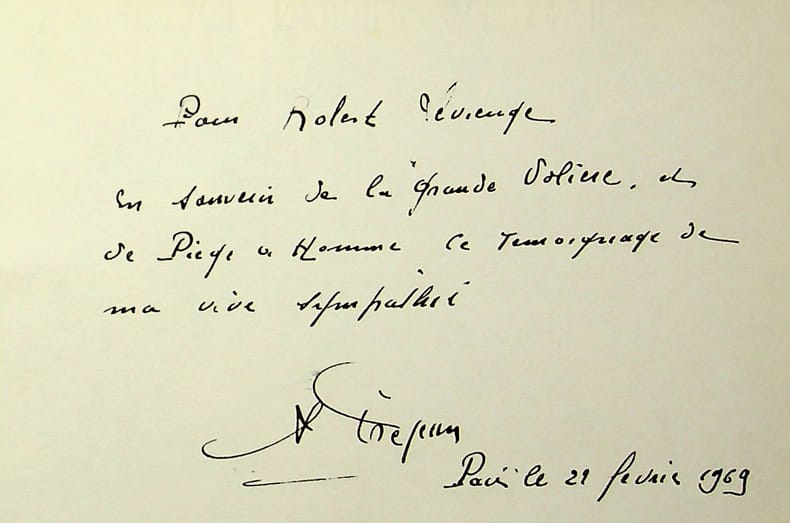 Pour Robert
En souvenir de la Grande Volière, et
de Piège à Homme ce temoignage de
ma vive sympathie
Paris le 21 fevrier 1969